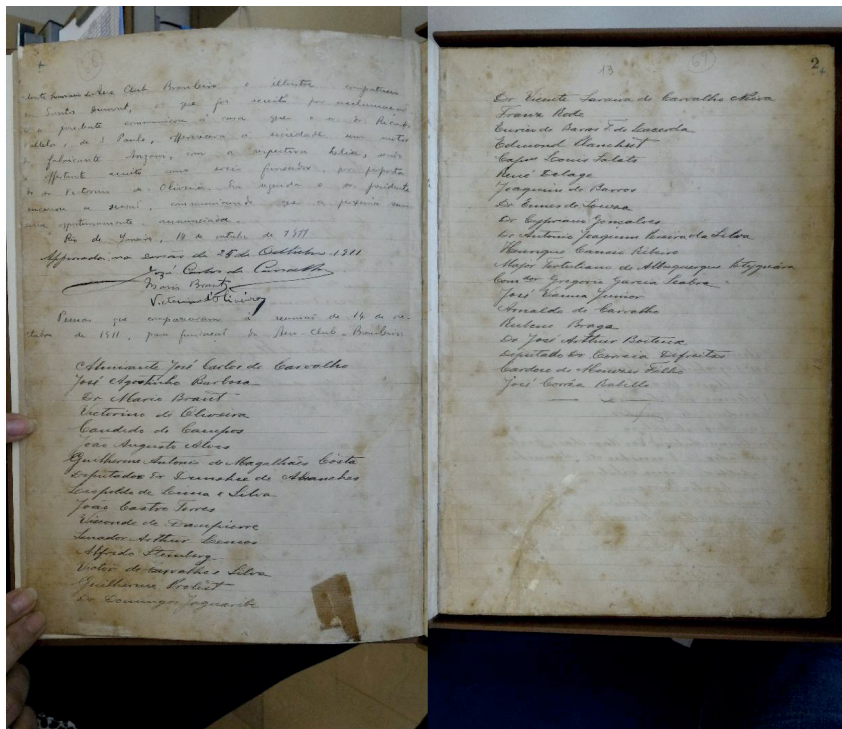 Aero Club Brasileiro o illustre compatriota
Santos Dumont, o que foi acceito por acclamação
o presidente communicou á casa que o sr. Ricardo
de S. Paulo, offerecera á sociedade um motor
do fabricante Anzani, com a respectiva helice, sendo
offertante acceito como socio fundador, por proposta
do sr. Victorino de Oliveira. Em seguida o sr. presidente
encerrou a sessão, communicando que a proxima
seria opportunamente annunciada.
Rio de Janeiro, 14 de outubro de 1911
Approvada, na sessão de 25 de Outubro 1911
José Carlos de Carvalho
Mario Brant
Victorino d'Oliveira
Pessoas que compareceram á reunião de 14 de ou-
tubro de 1911, para fundação do Aero-Club-Brasileiro
Almirante José Carlos de Carvalho
José Agostinho Barbosa
Dr Mario Brant
Victorino de Oliveira
Candido de Campos
João Augusto Alves
Guilherme Antonio de Magalhães Costa
Deputado Dr Dunshee de Abranches
Leopoldo de Lima e Silva
João Castro Torres
Visconde de Dampierre
Senador Arthur Lemos
Alfredo Sternberg
Victor de Carvalhos Silva
Guilherme
Dr Domingos Jaguaribe
13
67
2
Dr Vicente Saraiva de Carvalho Neiva
Franz Rode
Eurico de Barros F. de Lacerda
Edmond Planchut
Louis
René Delage
Joaquim de Barros
Dr Ennes de Souza
Dr Cypriano Gonçalves
Dr Antonio Joaquim Pereira da Silva
Henrique Ribeiro
Major Tertuliano de Albuquerque Potyguára
Comdor Gregorio Garcia Seabra
José Vianna Junior
Arnaldo de Carvalho
Rubens Braga
Dr José Arthur Boiteux
Deputado Dr Correia Defreitas
Cardoso de Menezes Filho
José Corrêa Rabello